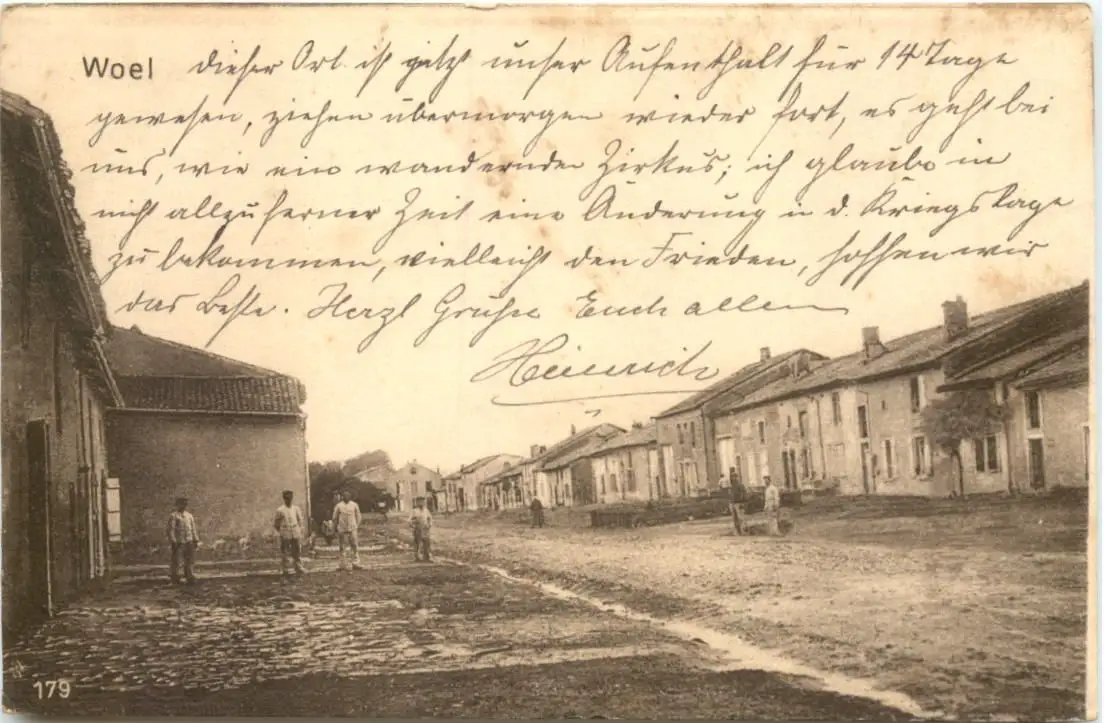 Woel dieser Ort ist jetzt unser Aufenthalt für 14 Tage
gewesen, ziehen übermorgen wieder fort, es geht bei
uns, wie ein wandernder Zirkus; ich glaube in
nicht allzuferner Zeit eine Änderung i d. Kriegslage
zu bekommen, vielleicht den Frieden, hoffen wir
das Beste. Herzl Grüsse Euch allen
Heinrich
179